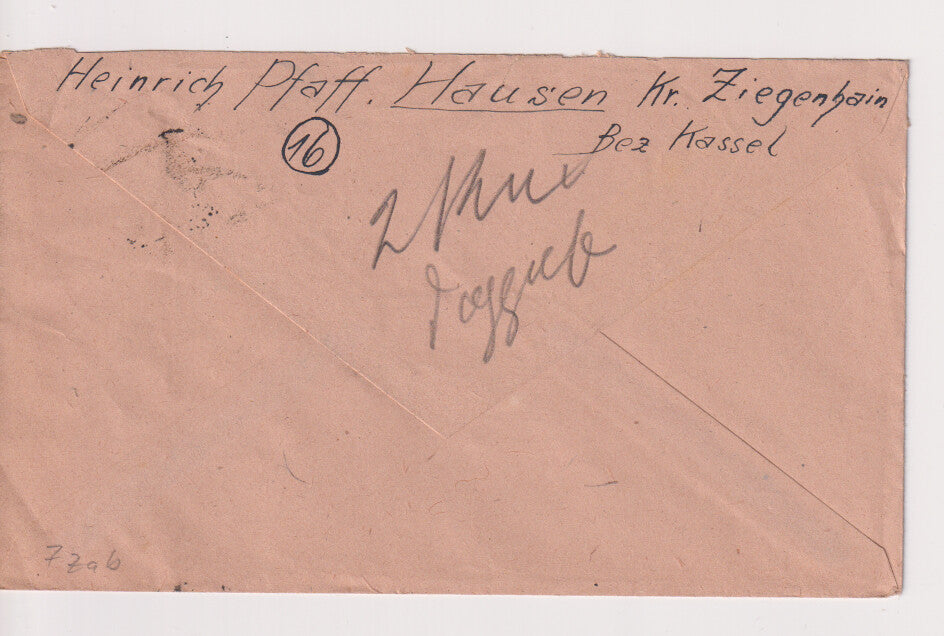 Heinrich Pfaff. Hausen Kr. Ziegenhain
16
Bez Kassel
2
7zab